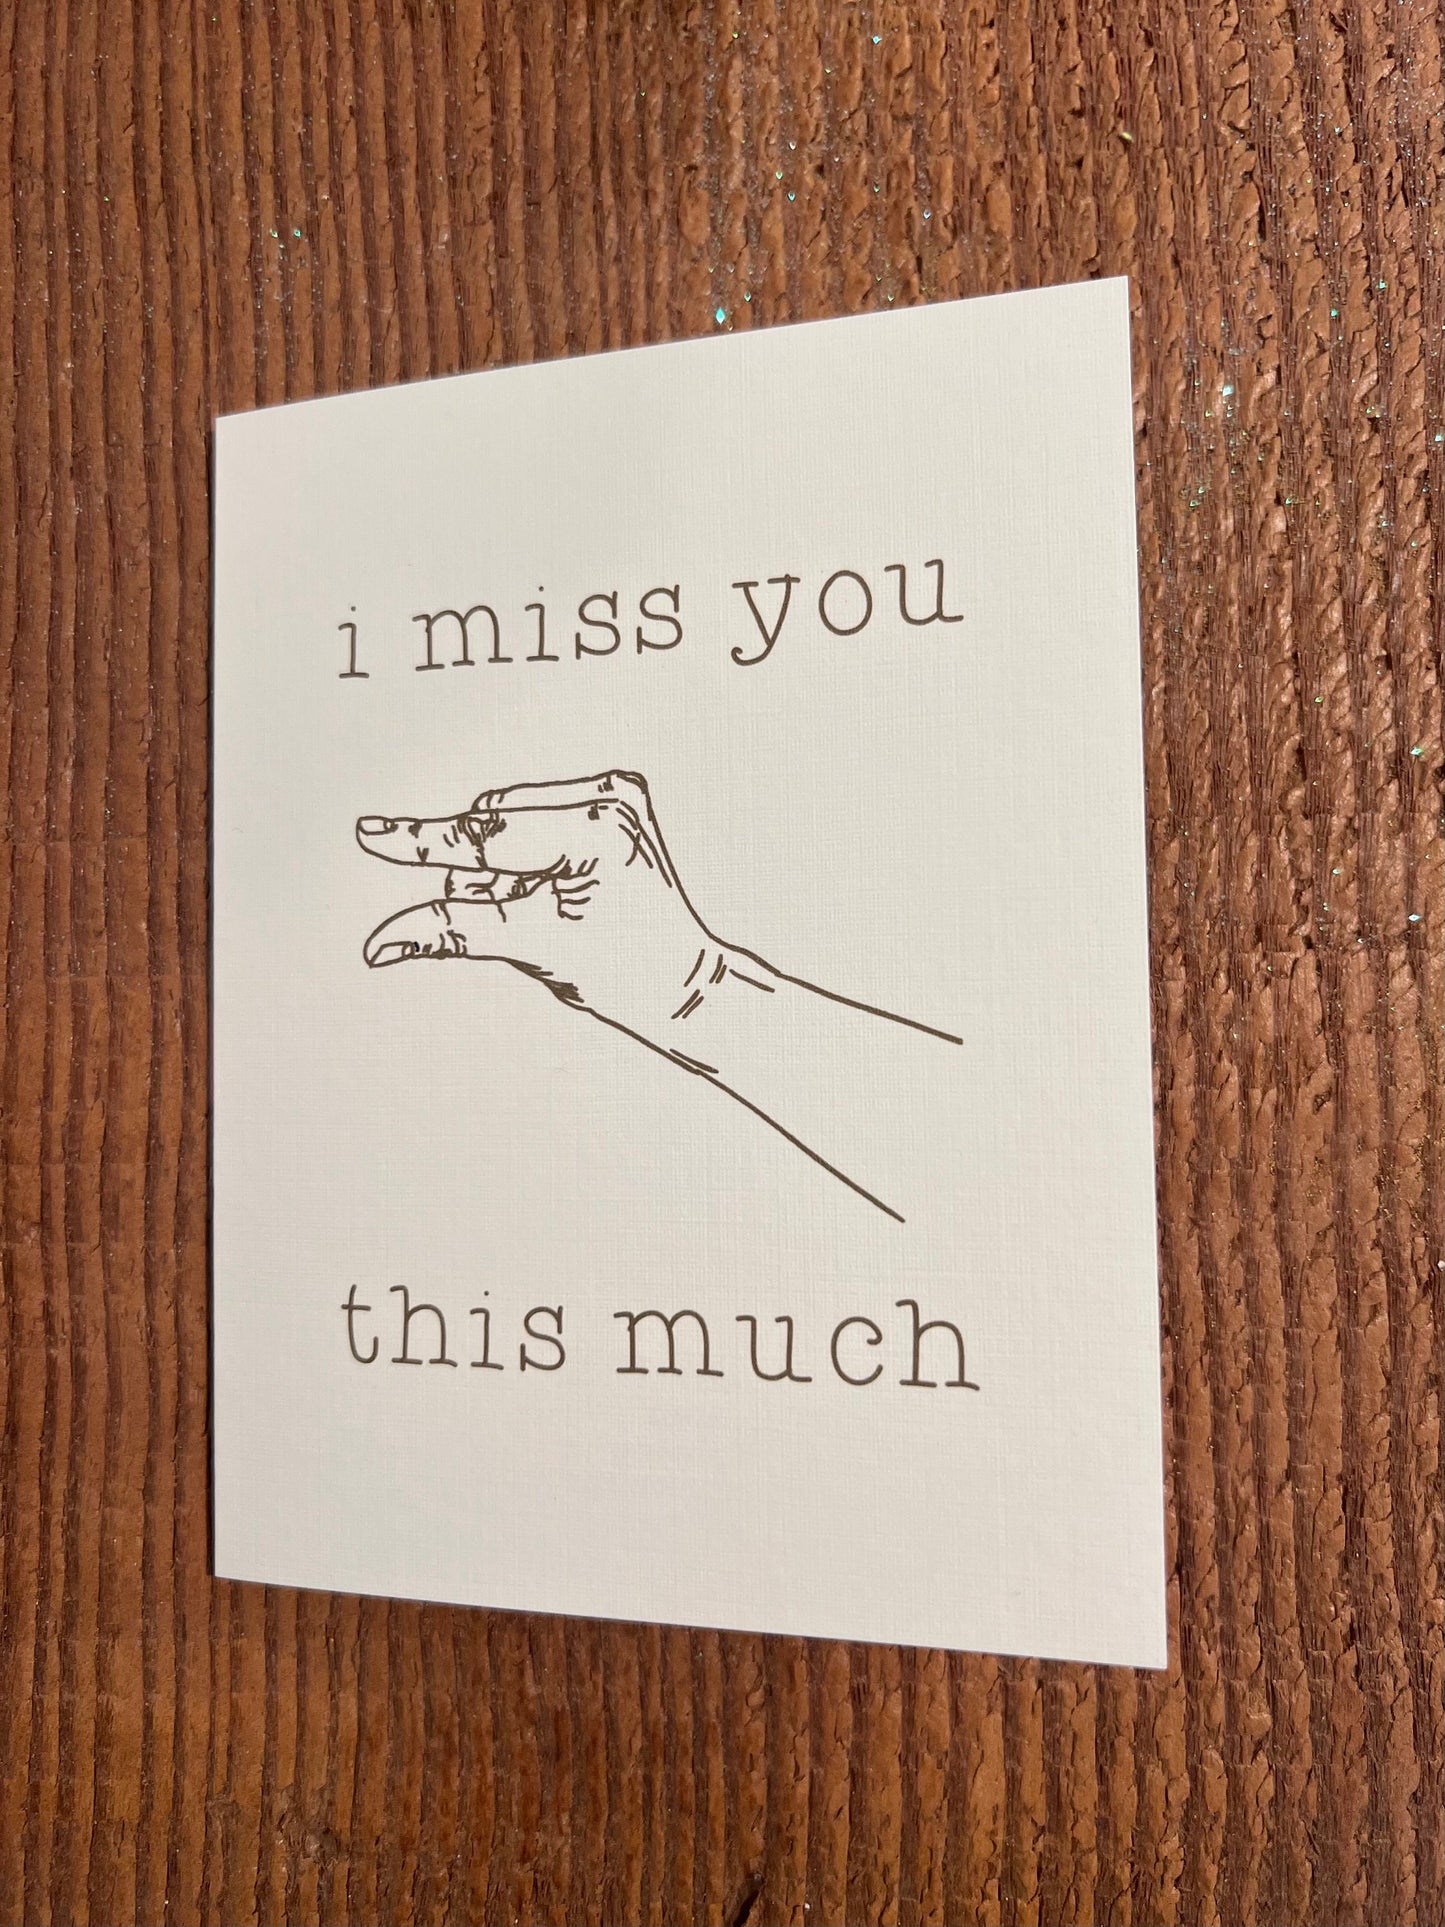 i miss you
this much